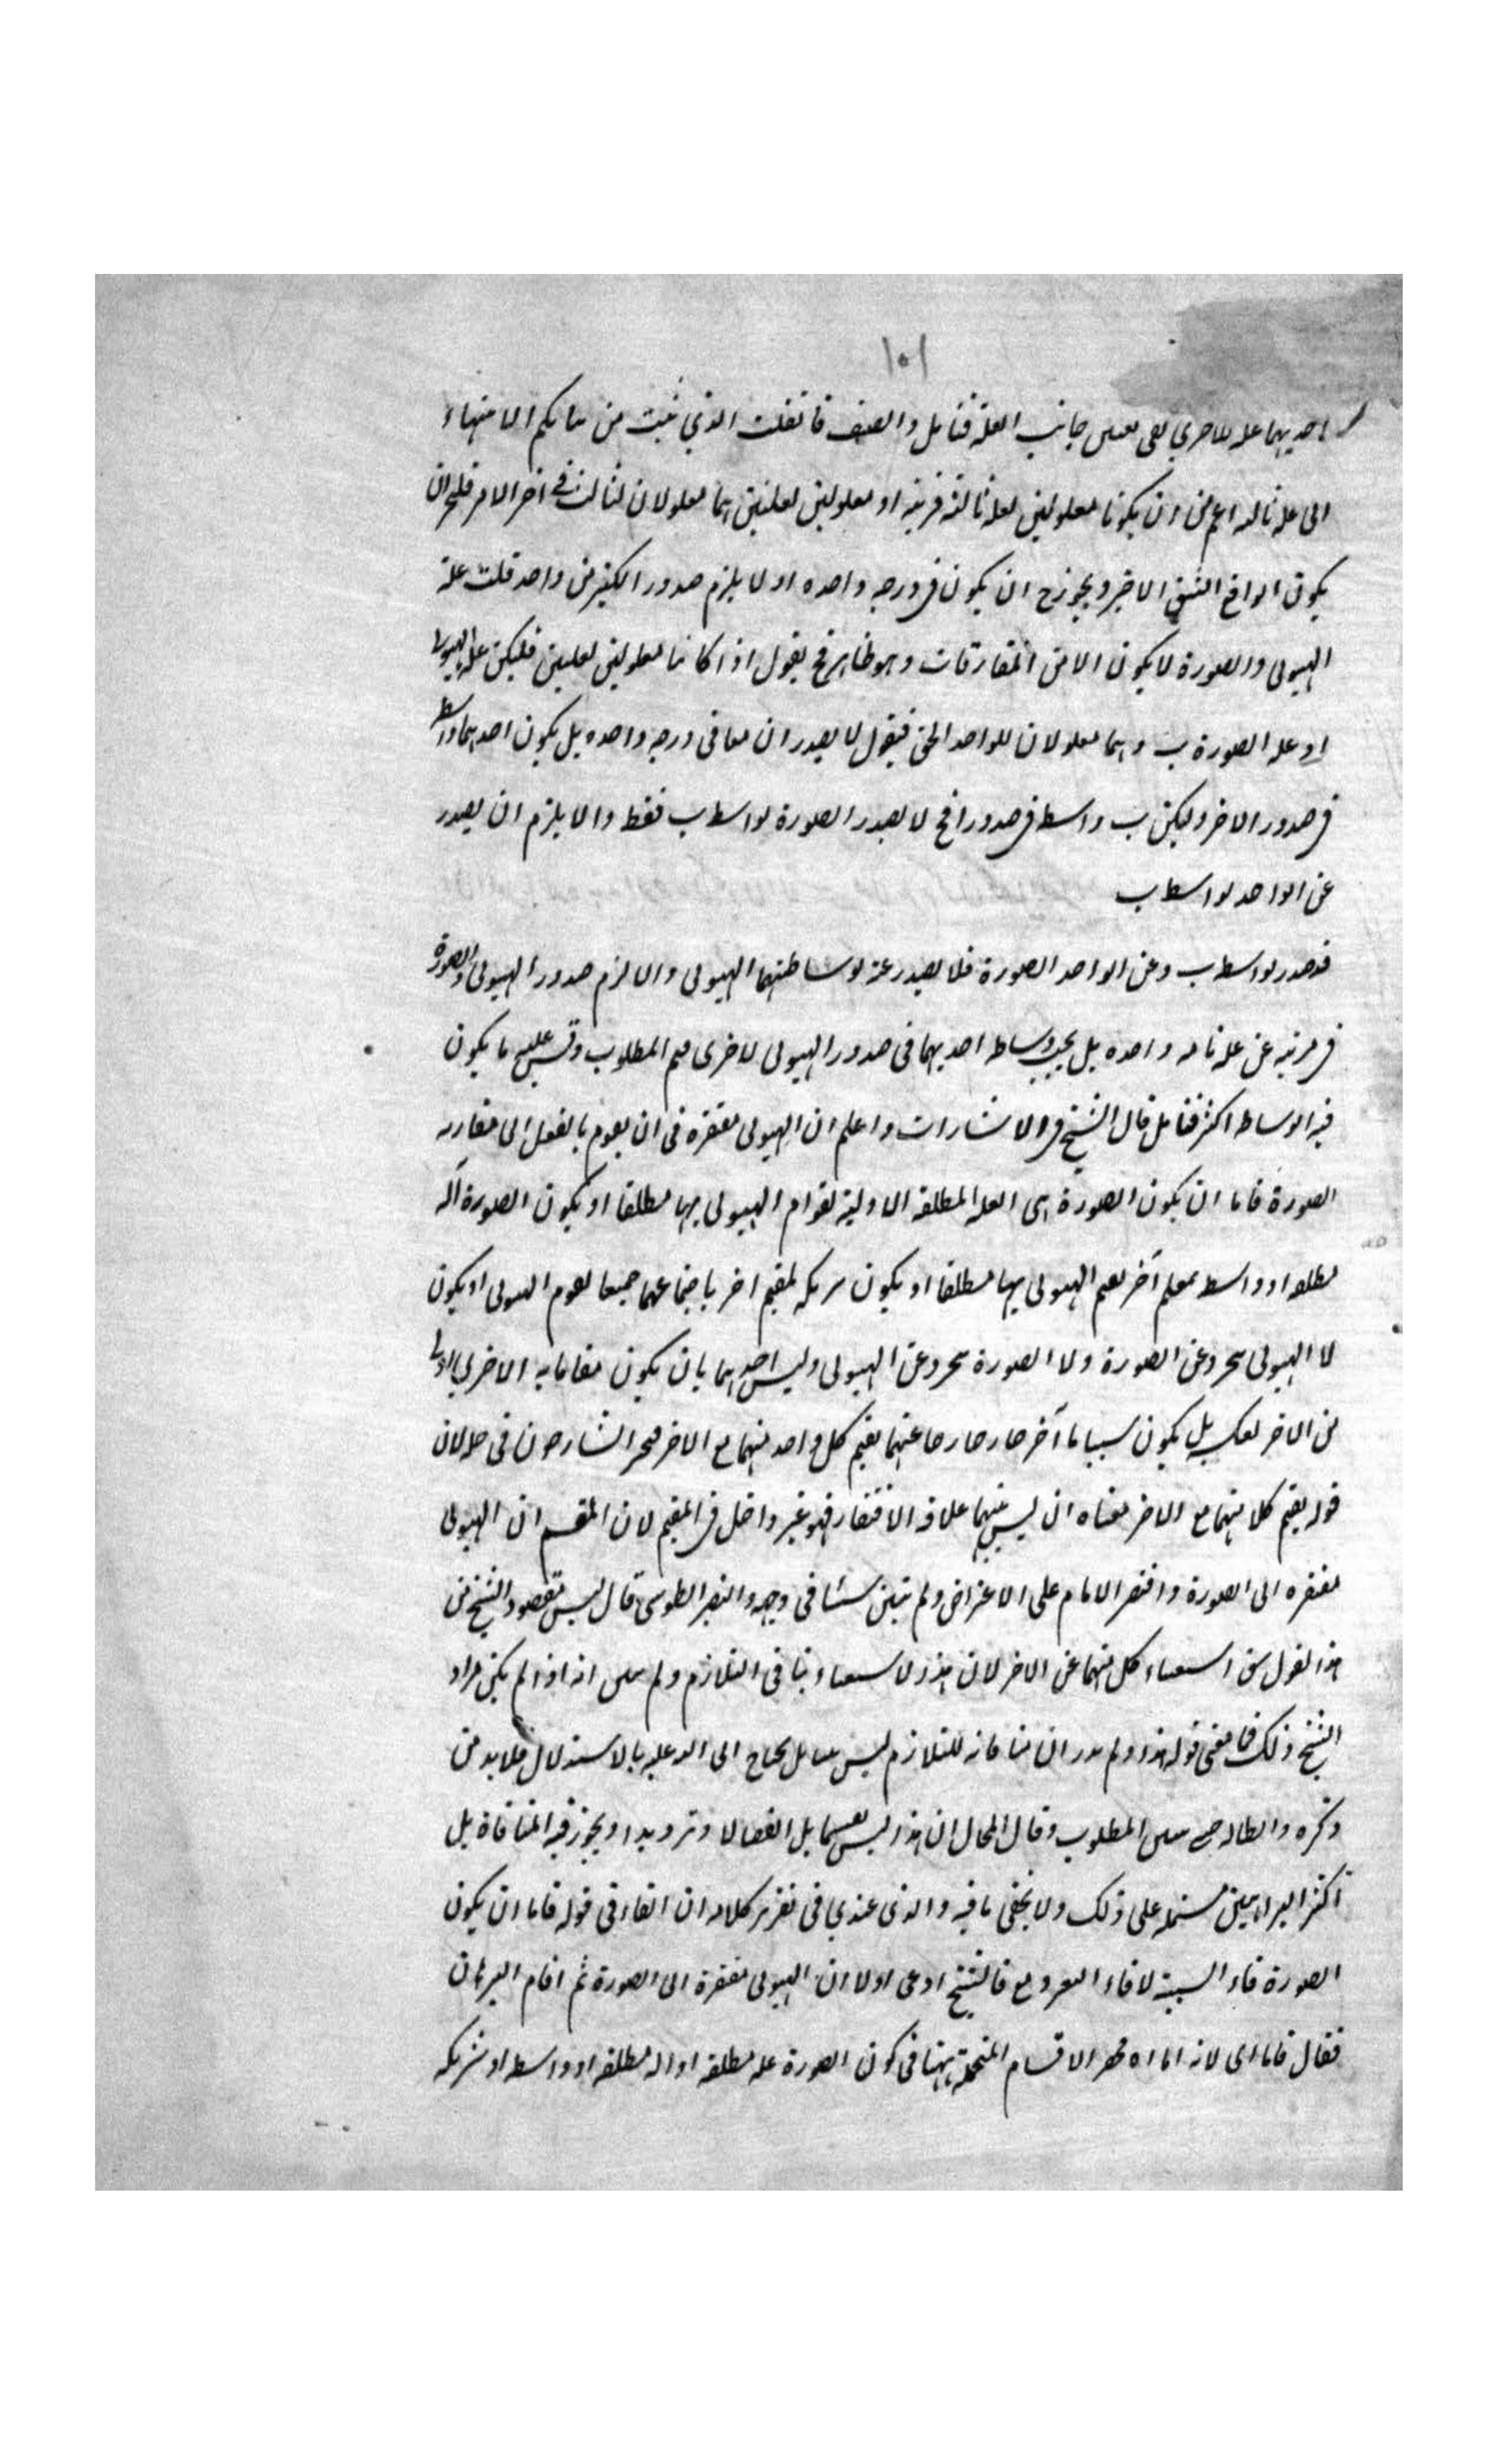 ١٥١
احديهما علة للاخرى بقى جانب العلة فتامل وانصف فان قلت الذي ثبت من بيانكم الانتهاء
الى علة ثالثة اعم من ان يكونا معلولين لعلة ثالثة قريبة او معلولين لعلتين هما معلولان لثالث في اخر الامر فليجز ان
يكون الواقع الشق الاخير ويجوز ح ان يكون في درجة واحدة اذ لا يلزم صدور الكثير من واحد قلت علة
الهيولى والصورة لا يكون الا من المفارقات وهو ظاهر فح نقول اذا كانتا معلولين لعلتين فليكن علة الهيولى ا
و علة الصورة ب وهما معلولان للواحد الحق فنقول لا يصدران معا في درجة واحدة بل يكون احدهما واسطة
في صدور الاخر وليكن ب واسطة في صدور ا فح لا يصدر الصورة بواسطة ب فقط والا يلزم ان يصدر
عن الواحد بواسطة ب
قد صدر بواسطة ب وعن الواحد الصورة فلا يصدر عنه بوساطتهما الهيولى والا لزم صدور الهيولى والصورة
في مرتبة عن علة تامة واحدة بل يجب وساطة احديهما في صدور الهيولى لاخرى فتم المطلوب وقس عليه ما يكون
فيه الوسائط اكثر فتامل قال الشيخ في الاشارات واعلم ان الهيولى مفتقرة في ان يقوم بالفعل الى مقارنة
الصورة فاما ان يكون الصورة هى العلة المطلقة الاولية لقوام الهيولى بها مطلقا او يكون الصورة آلة
مطلقة او واسطة لمقيم آخر يقيم الهيولى بها مطلقا او يكون شريكة لمقيم اخر باجتماعهما جميعا يقوم الهيولى او يكون
لا الهيولى يتجرد عن الصورة ولا الصورة يتجرد عن الهيولى وليس احدهما بان يكون مقاما به الاخر باولى
من الاخر بعكسه بل يكون سبب ما آخر خارجا عنهما يقيم كل واحد منهما مع الاخر فتحير الشارحون في حله لان
قوله يقيم كلا منهما مع الاخر معناه ان ليس بينهما علاقة الافتقار فهو غير داخل في المقسم لان المقسم ان الهيولى
مفتقرة الى الصورة واقتصر الامام على الاعتراض ولم يتبين شيئا في وجهه والنصير الطوسى قال ليس مقصود الشيخ من
هذا القول استغناء كل منهما عن الاخر لان هذا الاستغناء ينافى التلازم ولم انه اذا لم يكن مراد
الشيخ ذلك فما معنى قوله هذا ولم يدر ان منافاته للتلازم ليس يحتاج الى بالاستدلال فلا بد من
ذكره وابطاله حتى المطلوب وقال المحاكم ان هذا ليس تقسيما بل انفصالا وترديدا ويجوز فيه المنافاة بل
اكثر البراهين مشتملة على ذلك ولا يخفى ما فيه والذى عندي في تقرير كلامه ان الفاء في قوله فاما ان يكون
الصورة فاء السببية لا فاء التفريع فالشيخ ادعى اولا ان الهيولى مفتقرة الى الصورة ثم اقام البرهان
فقال فاما اى لانه اما اه فحصر الاقسام المحتملة ههنا في كون الصورة علة مطلقة او آلة مطلقة او واسطة او شريكة